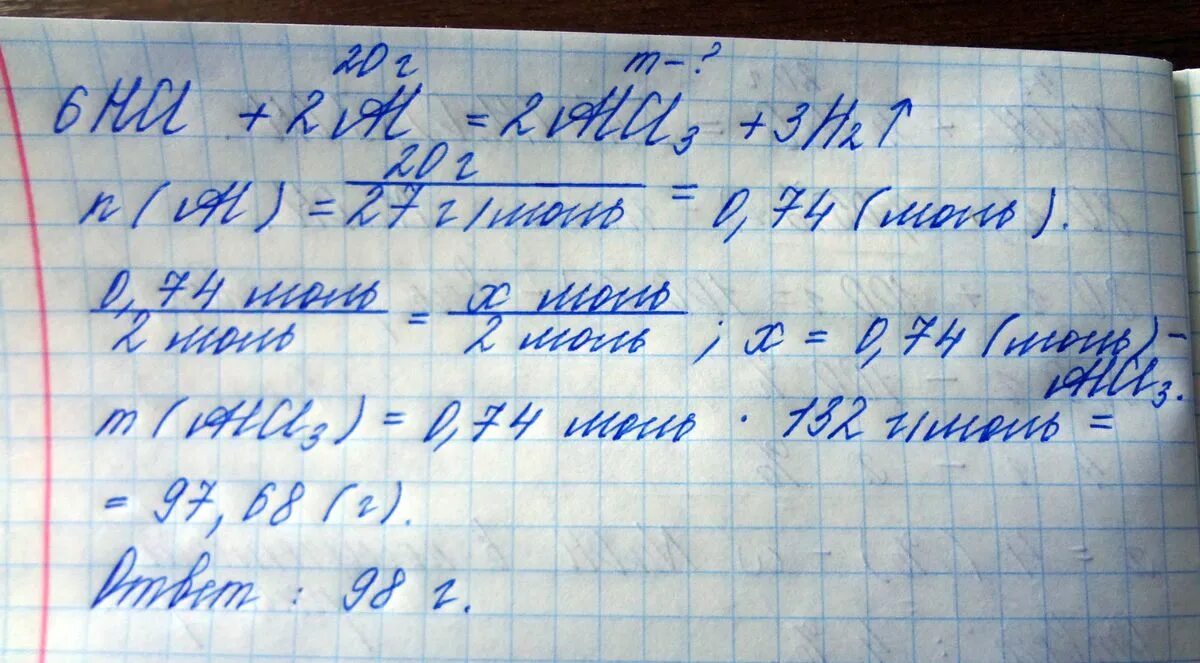 20 г m-?
6HCl + 2Al = 2AlCl₃ + 3H₂↑
20 г
n(Al) = 27 г/моль = 0,74 (моль).
0,74 моль = x моль
2 моль 2 моль ; x = 0,74 (моль) -
AlCl₃.
m(AlCl₃) = 0,74 моль · 132 г/моль =
= 97,68 (г).
Ответ : 98 г.